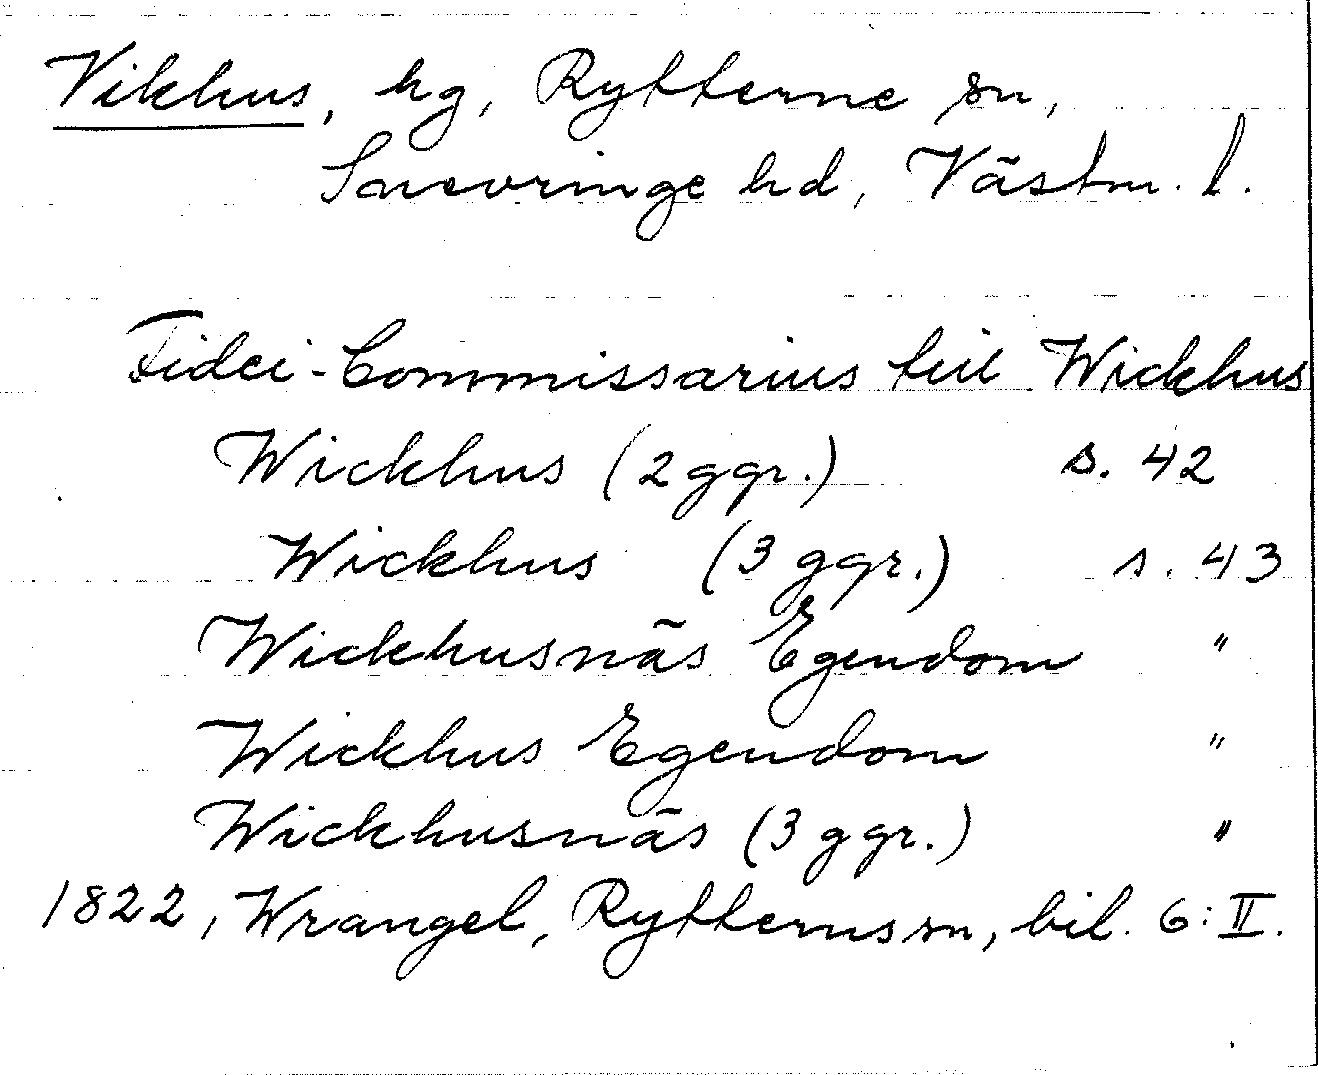 Vikhus, hg, Rytterne sn,
Snevringe hd, Västm. l.
Fidei-Commissarius till Wickhus
Wickhus (2 ggr.) s. 42
Wickhus (3 ggr.) s. 43
Wickhusnäs Egendom "
Wickhus Egendom "
Wickhusnäs (3 ggr.) "
1822, Wrangel, Rytterns sn, bil. 6:II.